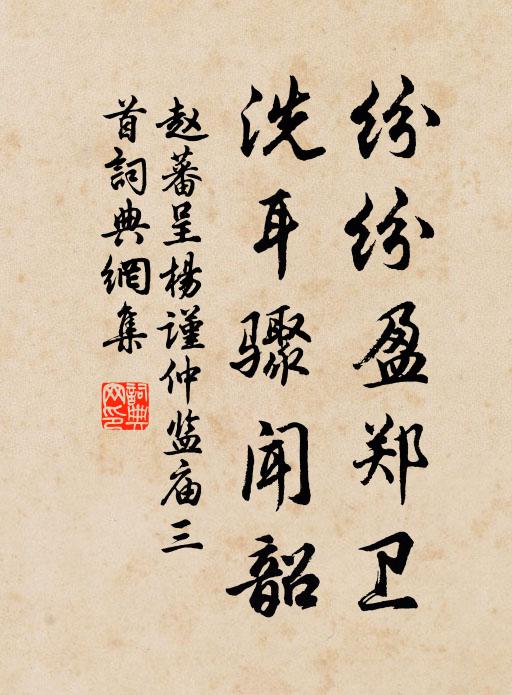 纷纷盈郑卫
洗耳骤闻韶
赵蕃呈楊谨仲监庙三
首詞典網集
詞典
网印